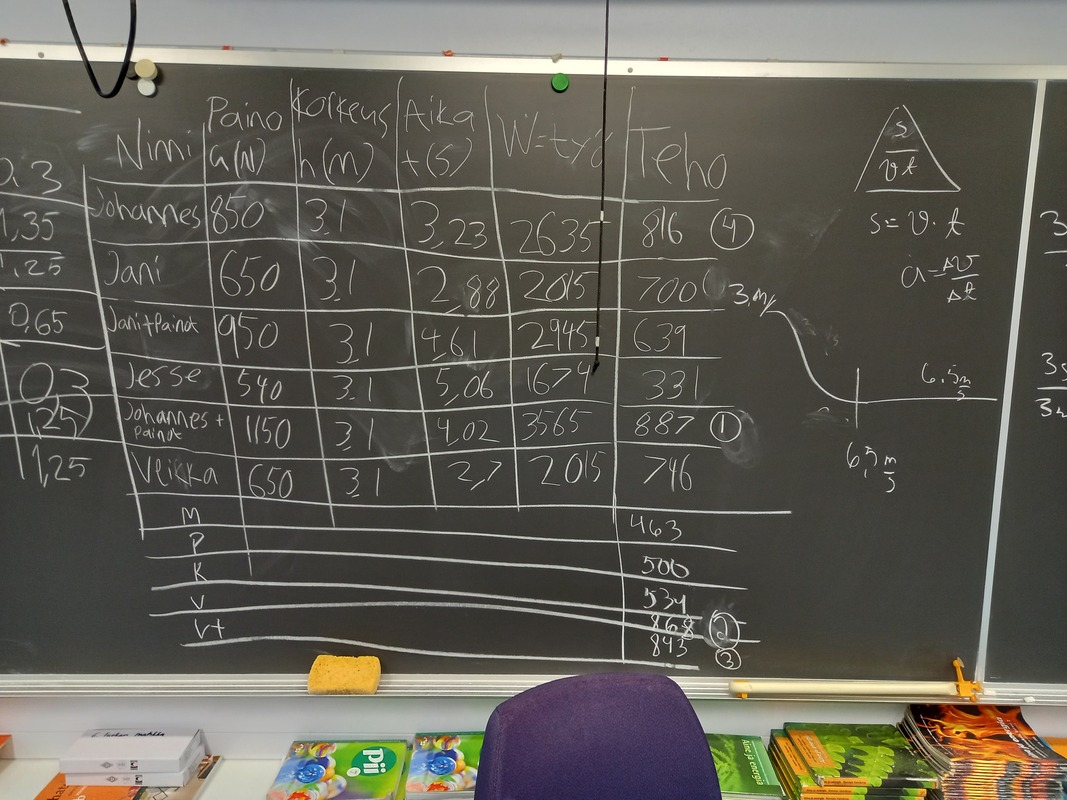 Nimi Paino G(N) Korkeus h(m) Aika t(s) W=työ Teho
Johannes 850 3.1 3,23 2635 816 4
Jani 650 3.1 2,88 2015 700
Jani+Painot 950 3.1 4,61 2945 639
Jesse 540 3.1 5,06 1674 331
Johannes + Painot 1150 3.1 4,02 3565 887 1
Veikka 650 3.1 2,7 2015 746
M 463
P 500
K 534
V 868 2
V+ 843 3
0,3
1,35
1,25
0,65
0,3
1,25
1,25
s
v t
s = v · t
a = Δv
Δt
3 m/
6,5 m
s
6,5 m
s
3
Pii
Aine ja energia